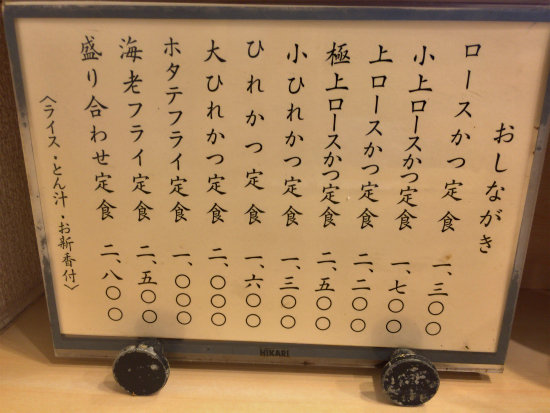 おしながき
ロースかつ定食 一、三〇〇
小上ロースかつ定食 一、七〇〇
上ロースかつ定食 二、二〇〇
極上ロースかつ定食 二、五〇〇
小ひれかつ定食 一、三〇〇
ひれかつ定食 一、六〇〇
大ひれかつ定食 二、〇〇〇
ホタテフライ定食 一、〇〇〇
海老フライ定食 二、五〇〇
盛り合わせ定食 二、八〇〇
〈ライス・とん汁・お新香付〉
HIKARI